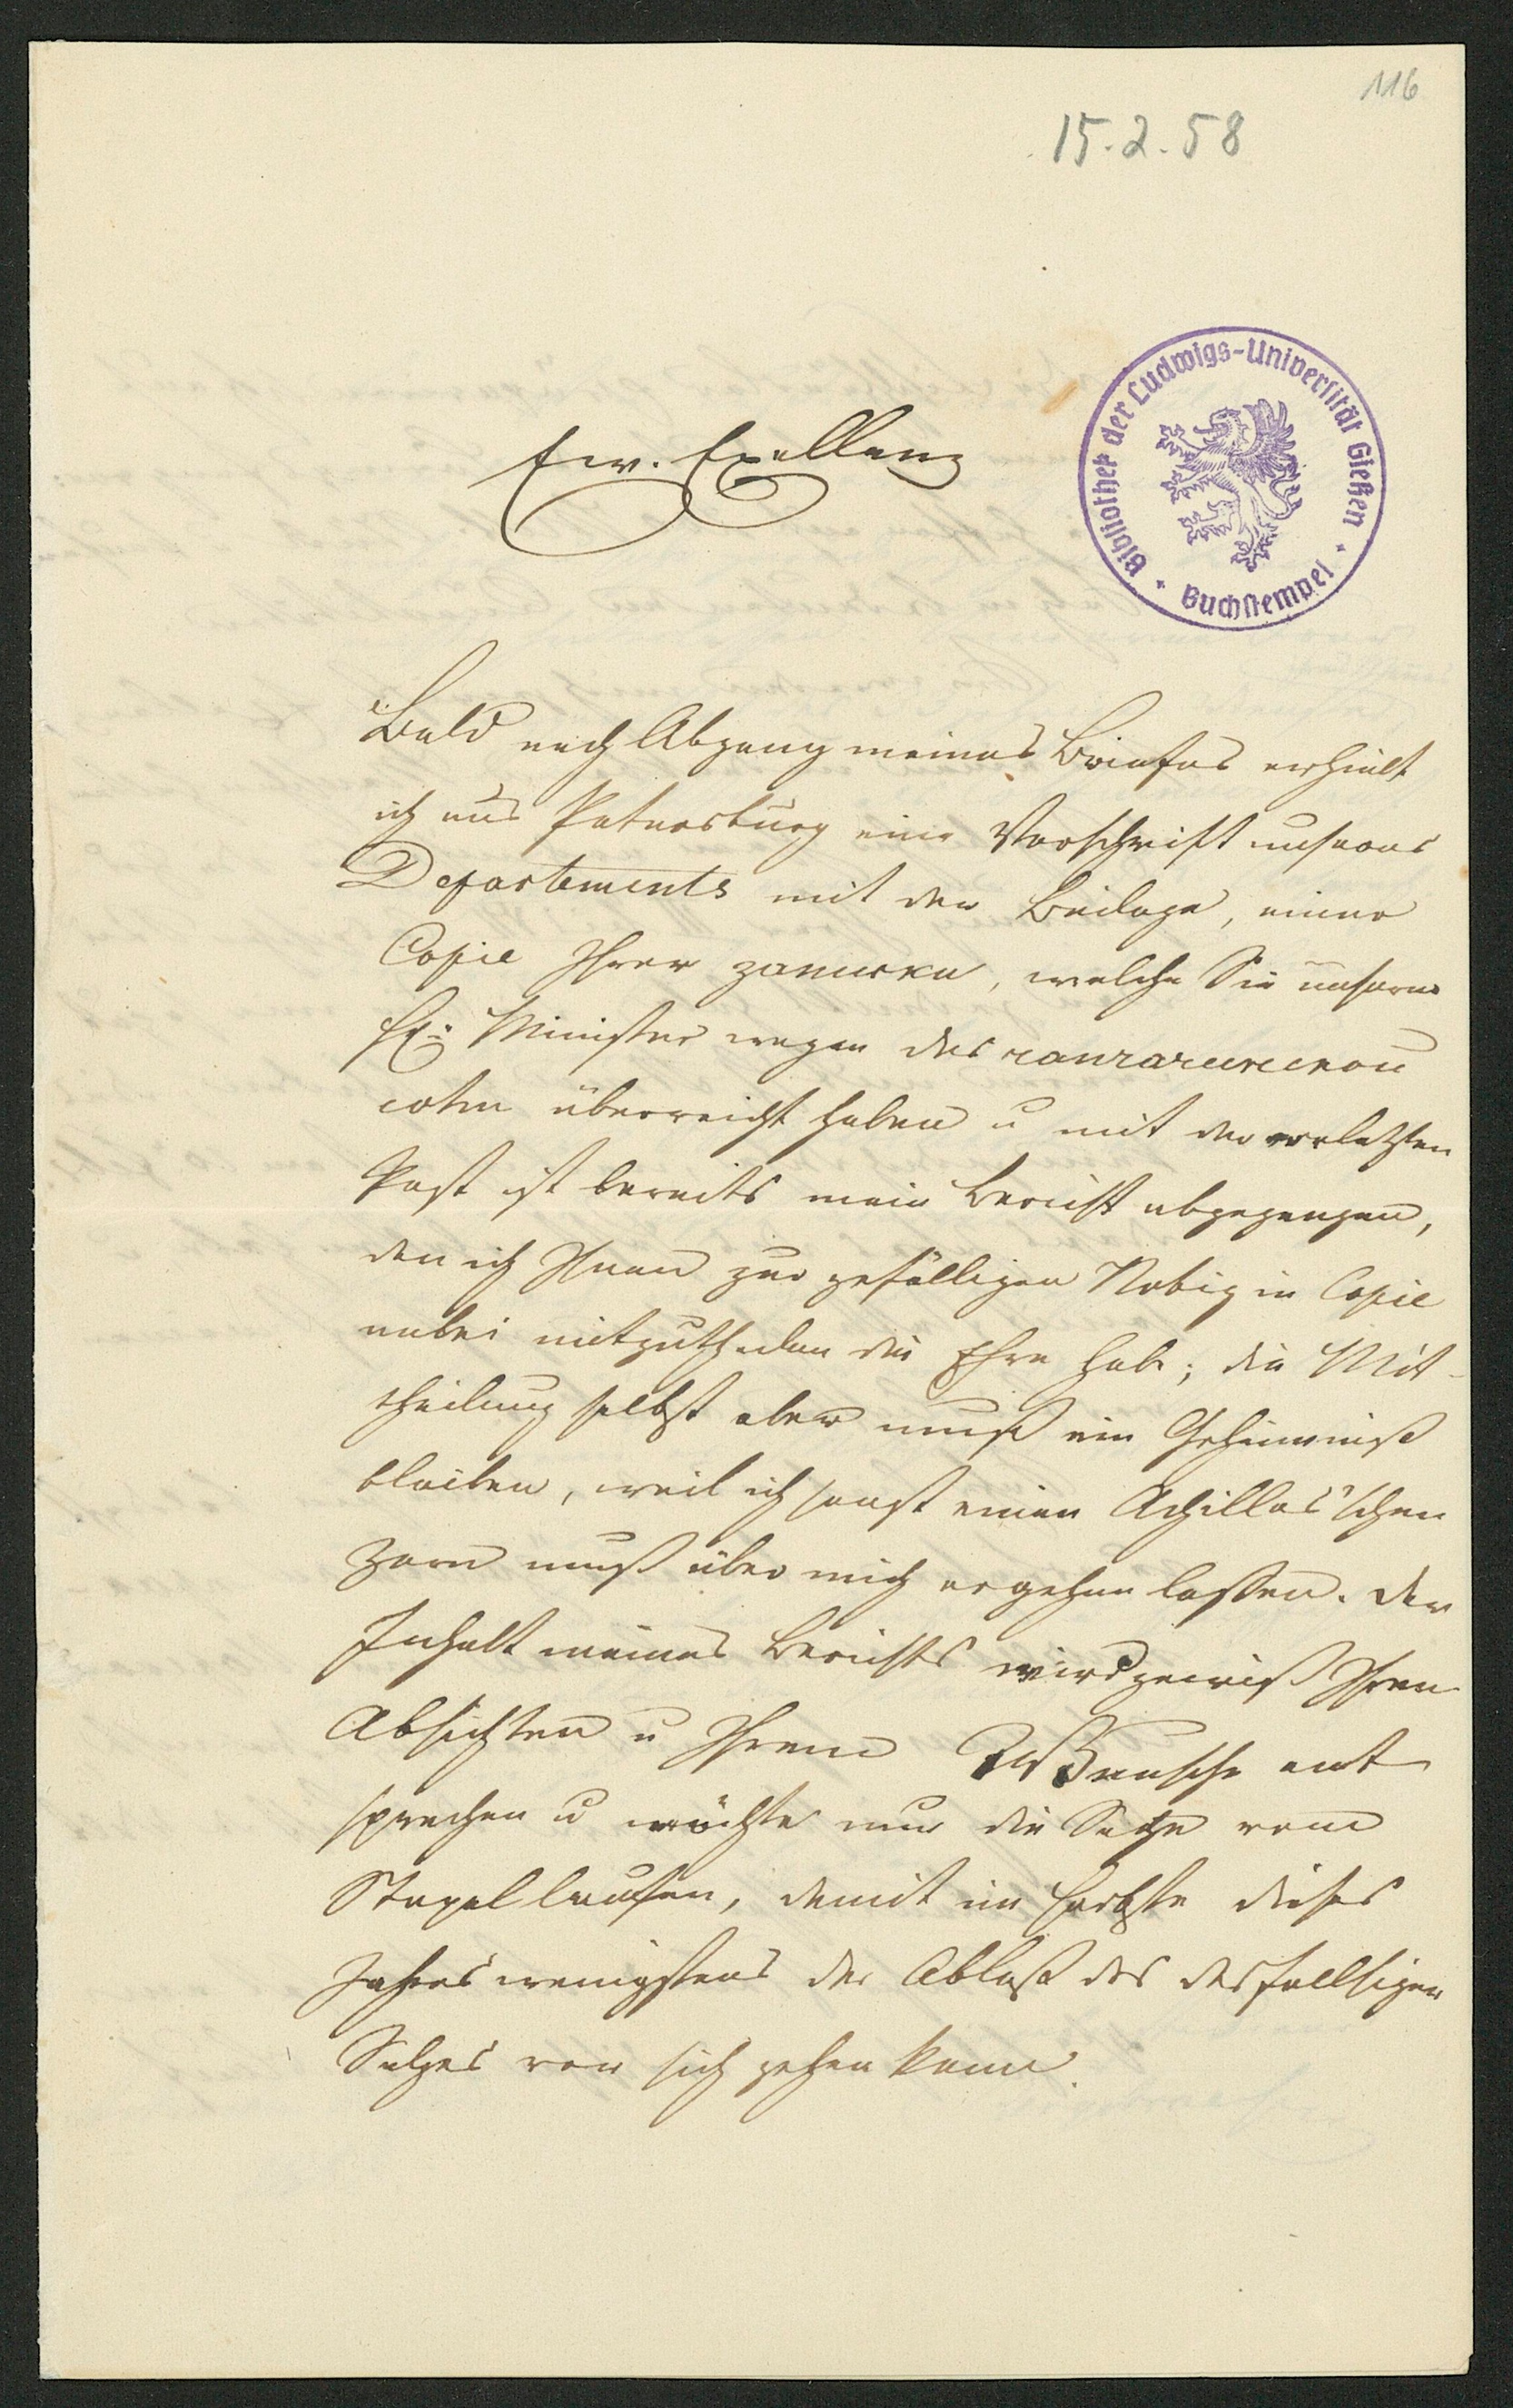 116
15.2.58
Bibliothek der Ludwigs-Universität Gießen
Buchstempel
Ew. Exellenz
Bald nach Abgang meines Briefes erhielt
ich aus Petersburg eine Vorschrift unseres
Departements mit der Beilage, einer
Copie Ihrer записки, welche Sie unserm
H: Minister wegen der
соли überreicht haben u mit der vorletzten
Post ist bereits mein Bericht abgegangen,
den ich Ihnen zur gefälligen Notiz in Copie
anbei mitzutheilen die Ehre habe; die Mit-
theilung selbst aber muß ein Geheimniß
bleiben, weil ich sonst einen Achilles'schen
Zorn muß über mich ergehen lassen. Der
Inhalt meines Berichts wird gewiß Ihren
Absichten u Ihrem Wunsche ent
sprechen u möchte nur die Sache vom
Stapel laufen, damit im Herbste dieses
Jahres wenigstens der Ablaß des desfallsigen
Salzes vor sich gehen kann.